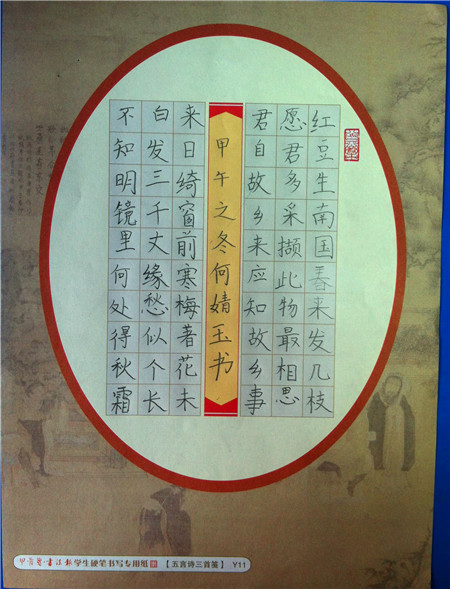 红豆生南国春来发几枝
愿君多采撷此物最相思
君自故乡来应知故乡事
甲午之冬何婧玉书
来日绮窗前寒梅著花未
白发三千丈缘愁似个长
不知明镜里何处得秋霜
书法报学生硬笔书写专用纸【五言诗三首笺】 Y11